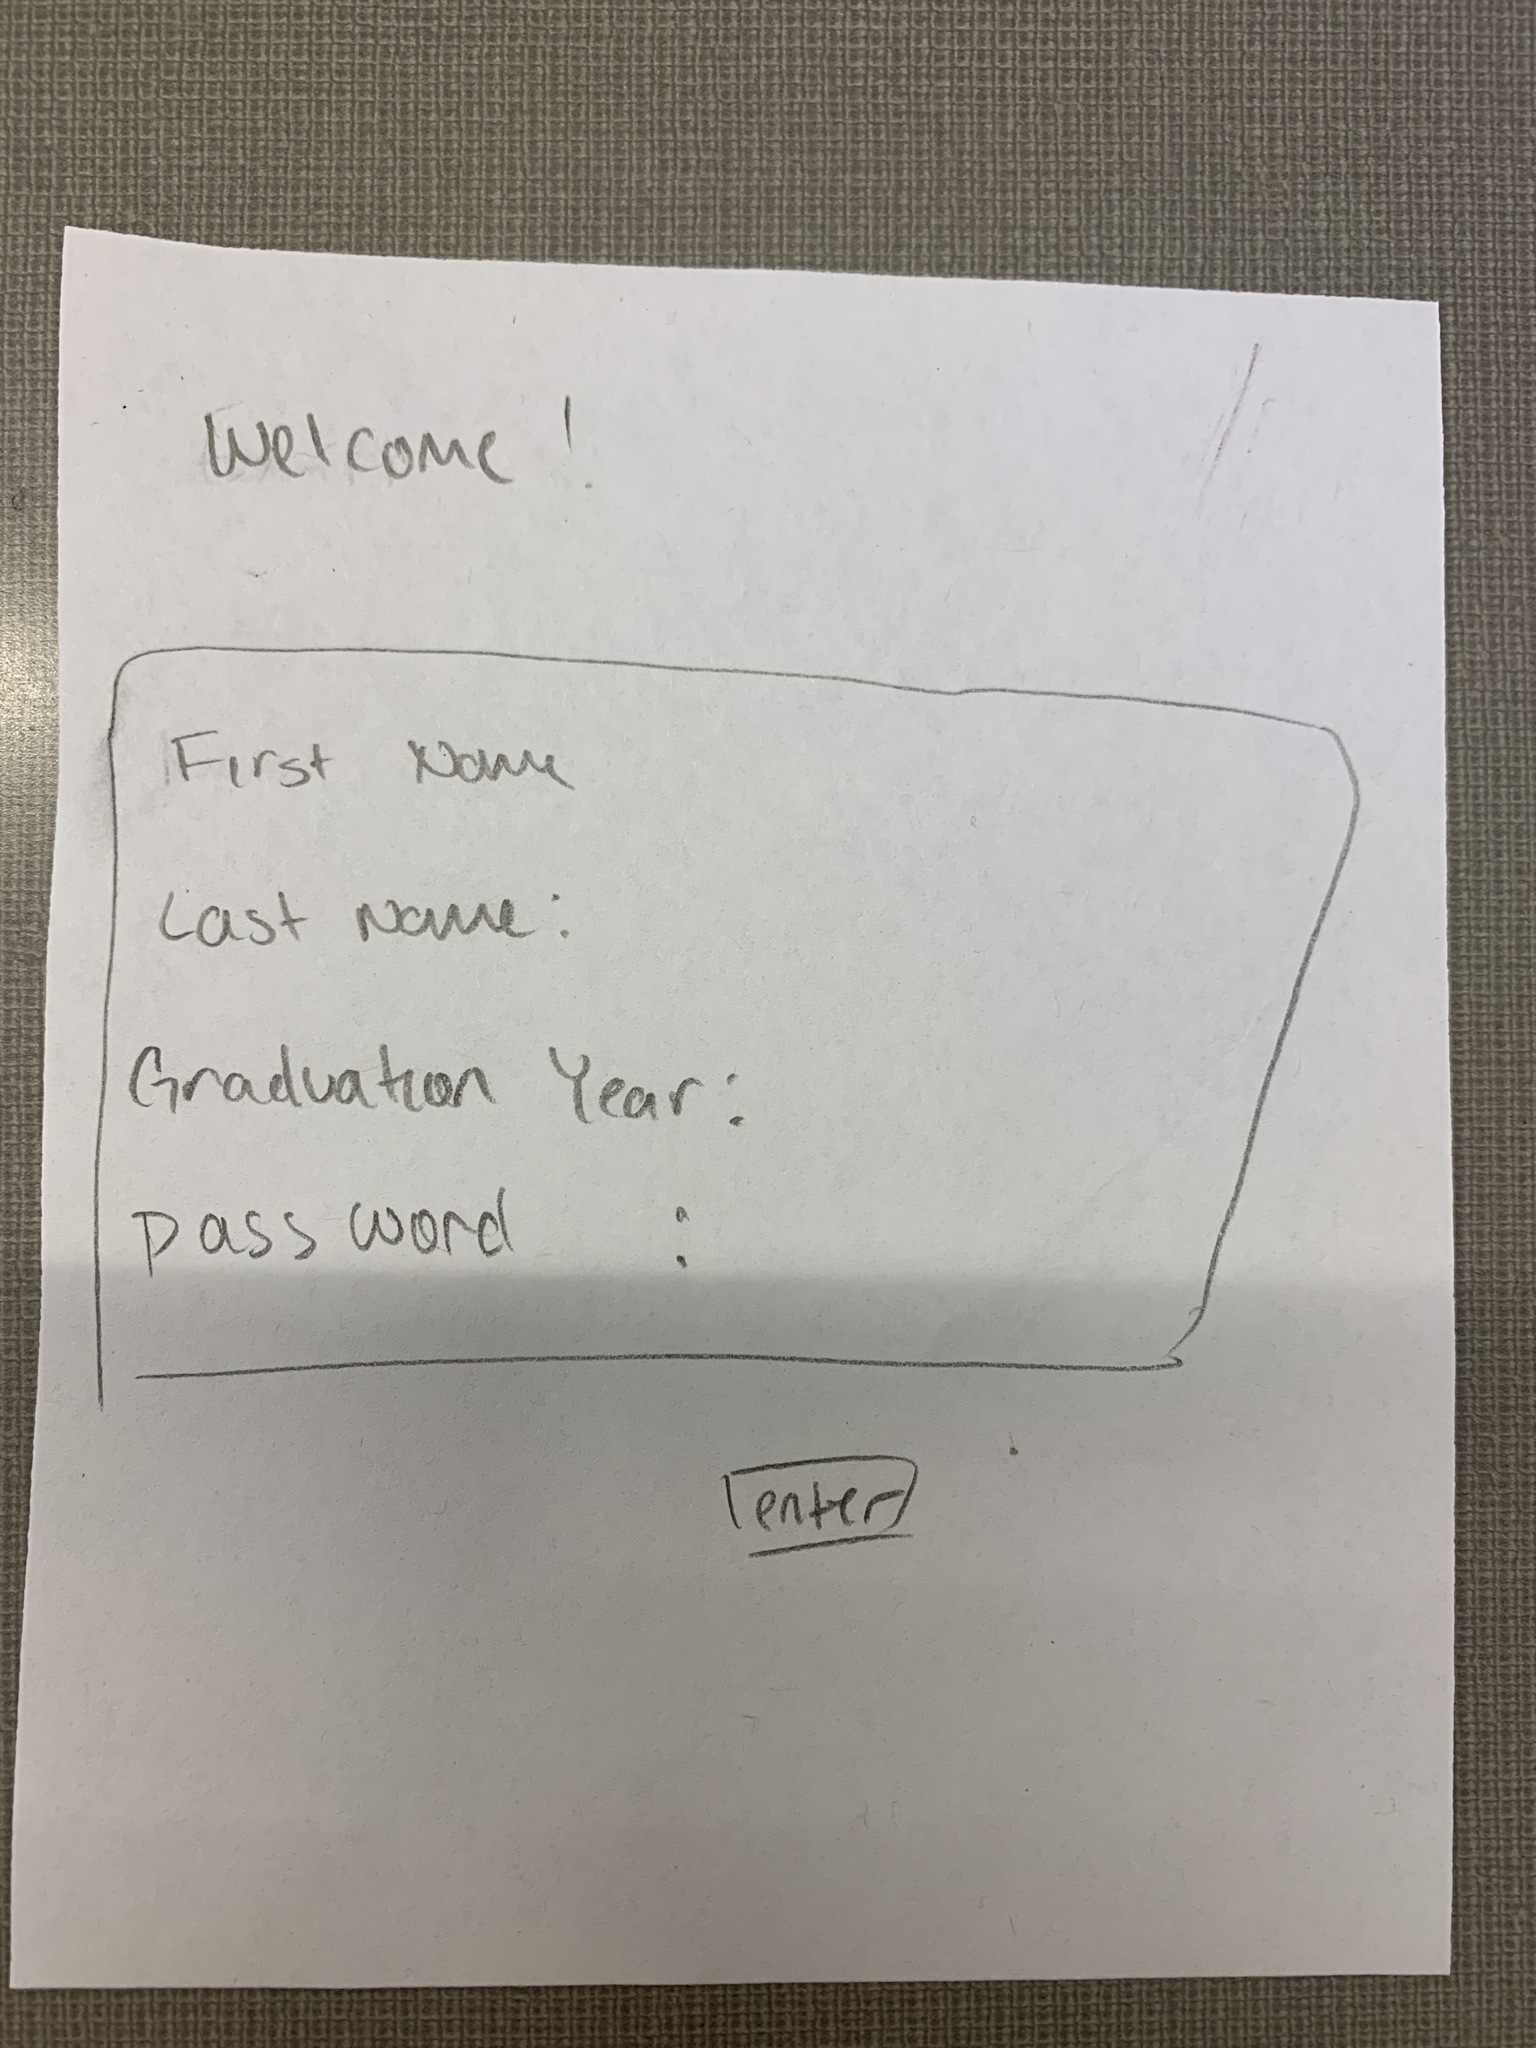 Welcome !
First Name
Last Name:
Graduation Year:
password :
enter